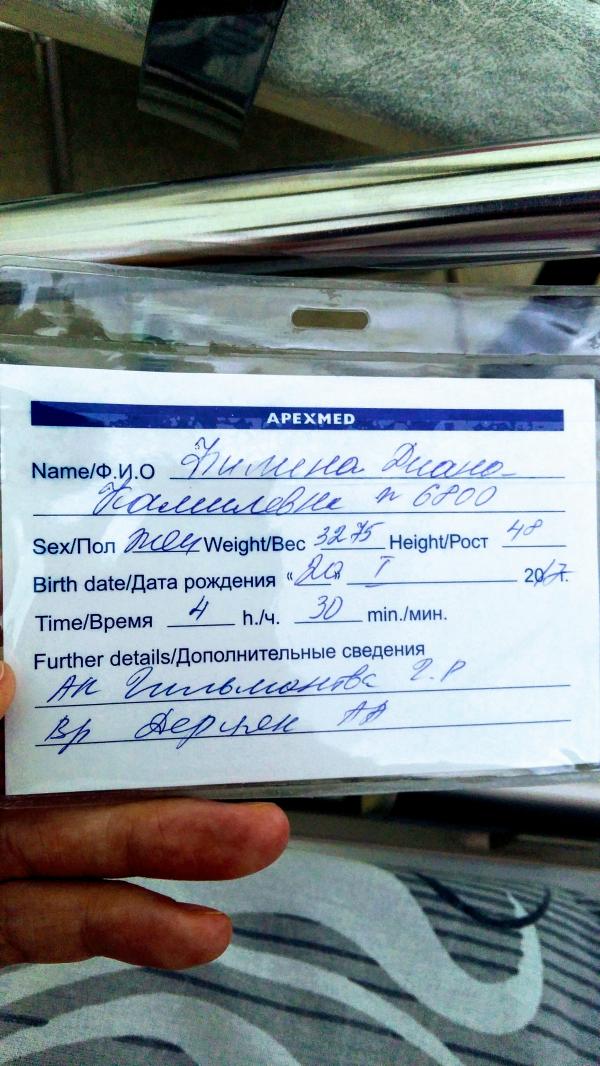 APEXMED
Name/Ф.И.О Диана
Камилевна n 6800
Sex/Пол жен Weight/Вес 3275 Height/Рост 48
Birth date/Дата рождения “20” I 2017г.
Time/Время 4 h./ч. 30 min./мин.
Further details/Дополнительные сведения
АК Гильмонтва Г.Р
Вр АА